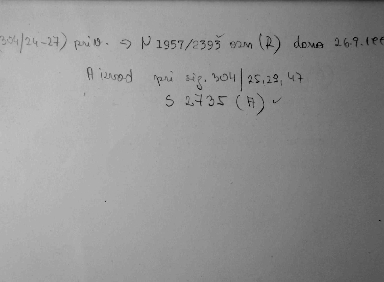 304/24-27) priv. → N 1957/2393 ozn (R) dana 26.9.
A izvod pri sig. 304/25,29,47
S 2735 (A) ✓